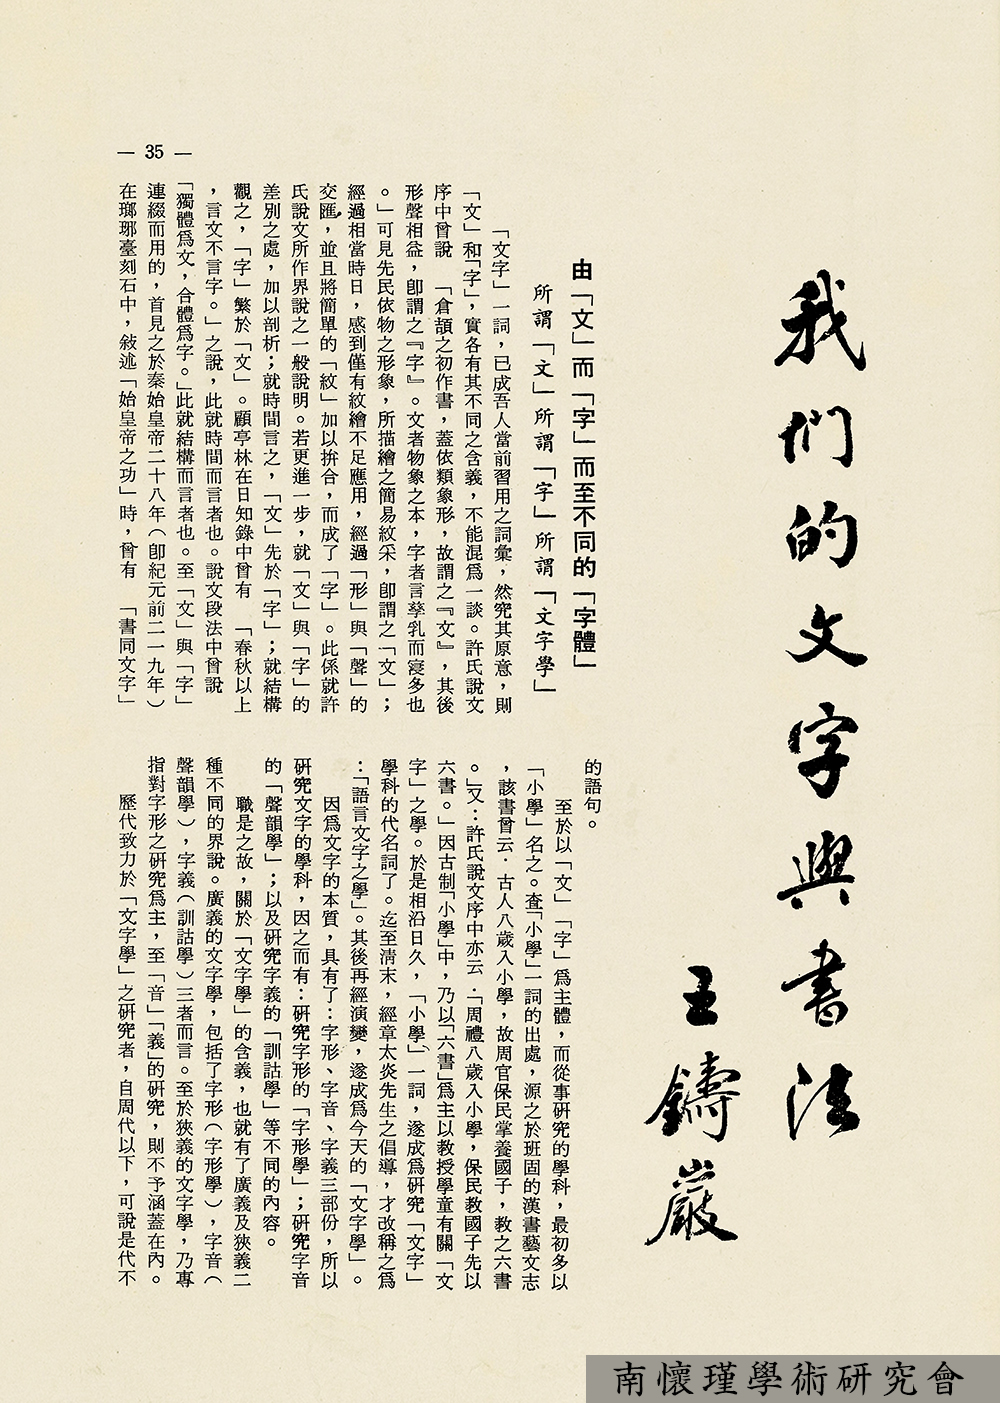 我們的文字與書法
王鑄巖
由「文」而「字」而至不同的「字體」
所謂「文」所謂「字」所謂「文字學」
「文字」一詞，已成吾人當前習用之詞彙，然究其原意，則
「文」和「字」，實各有其不同之含義，不能混爲一談。許氏說文
序中曾說　「倉頡之初作書，蓋依類象形，故謂之『文』，其後
形聲相益，卽謂之『字』。文者物象之本，字者言孳乳而寖多也
。」可見先民依物之形象，所描繪之簡易紋采，卽謂之「文」；
經過相當時日，感到僅有紋繪不足應用，經過「形」與「聲」的
交匯，並且將簡單的「紋」加以拚合，而成了「字」。此係就許
氏說文所作界說之一般說明。若更進一步，就「文」與「字」的
差別之處，加以剖析；就時間言之，「文」先於「字」；就結構
觀之，「字」繁於「文」。顧亭林在日知錄中曾有　「春秋以上
，言文不言字。」之說，此就時間而言者也。說文段法中曾說
「獨體爲文，合體爲字。」此就結構而言者也。至「文」與「字」
連綴而用的，首見之於秦始皇帝二十八年（卽紀元前二一九年）
在瑯琊臺刻石中，敍述「始皇帝之功」時，曾有　「書同文字」
的語句。
至於以「文」「字」爲主體，而從事硏究的學科，最初多以
「小學」名之。査「小學」一詞的出處，源之於班固的漢書藝文志
，該書曾云．古人八歲入小學，故周官保民掌養國子，教之六書
。」又：許氏說文序中亦云．「周禮八歲入小學，保民教國子先以
六書。」因古制「小學」中，乃以「六書」爲主以教授學童有關「文
字」之學。於是相沿日久，「小學」一詞，遂成爲硏究「文字」
學科的代名詞了。迄至淸末，經章太炎先生之倡導，才改稱之爲
：「語言文字之學」。其後再經演變，遂成爲今天的「文字學」。
因爲文字的本質，具有了：字形、字音、字義三部份，所以
硏究文字的學科，因之而有：硏究字形的「字形學」；硏究字音
的「聲韻學」；以及硏究字義的「訓詁學」等不同的內容。
職是之故，關於「文字學」的含義，也就有了廣義及狹義二
種不同的界說。廣義的文字學，包括了字形（字形學），字音（
聲韻學），字義（訓詁學）三者而言。至於狹義的文字學，乃專
指對字形之硏究爲主，至「音」「義」的硏究，則不予涵蓋在內。
歷代致力於「文字學」之硏究者，自周代以下，可說是代不
— 35 —
南懷瑾學術研究會